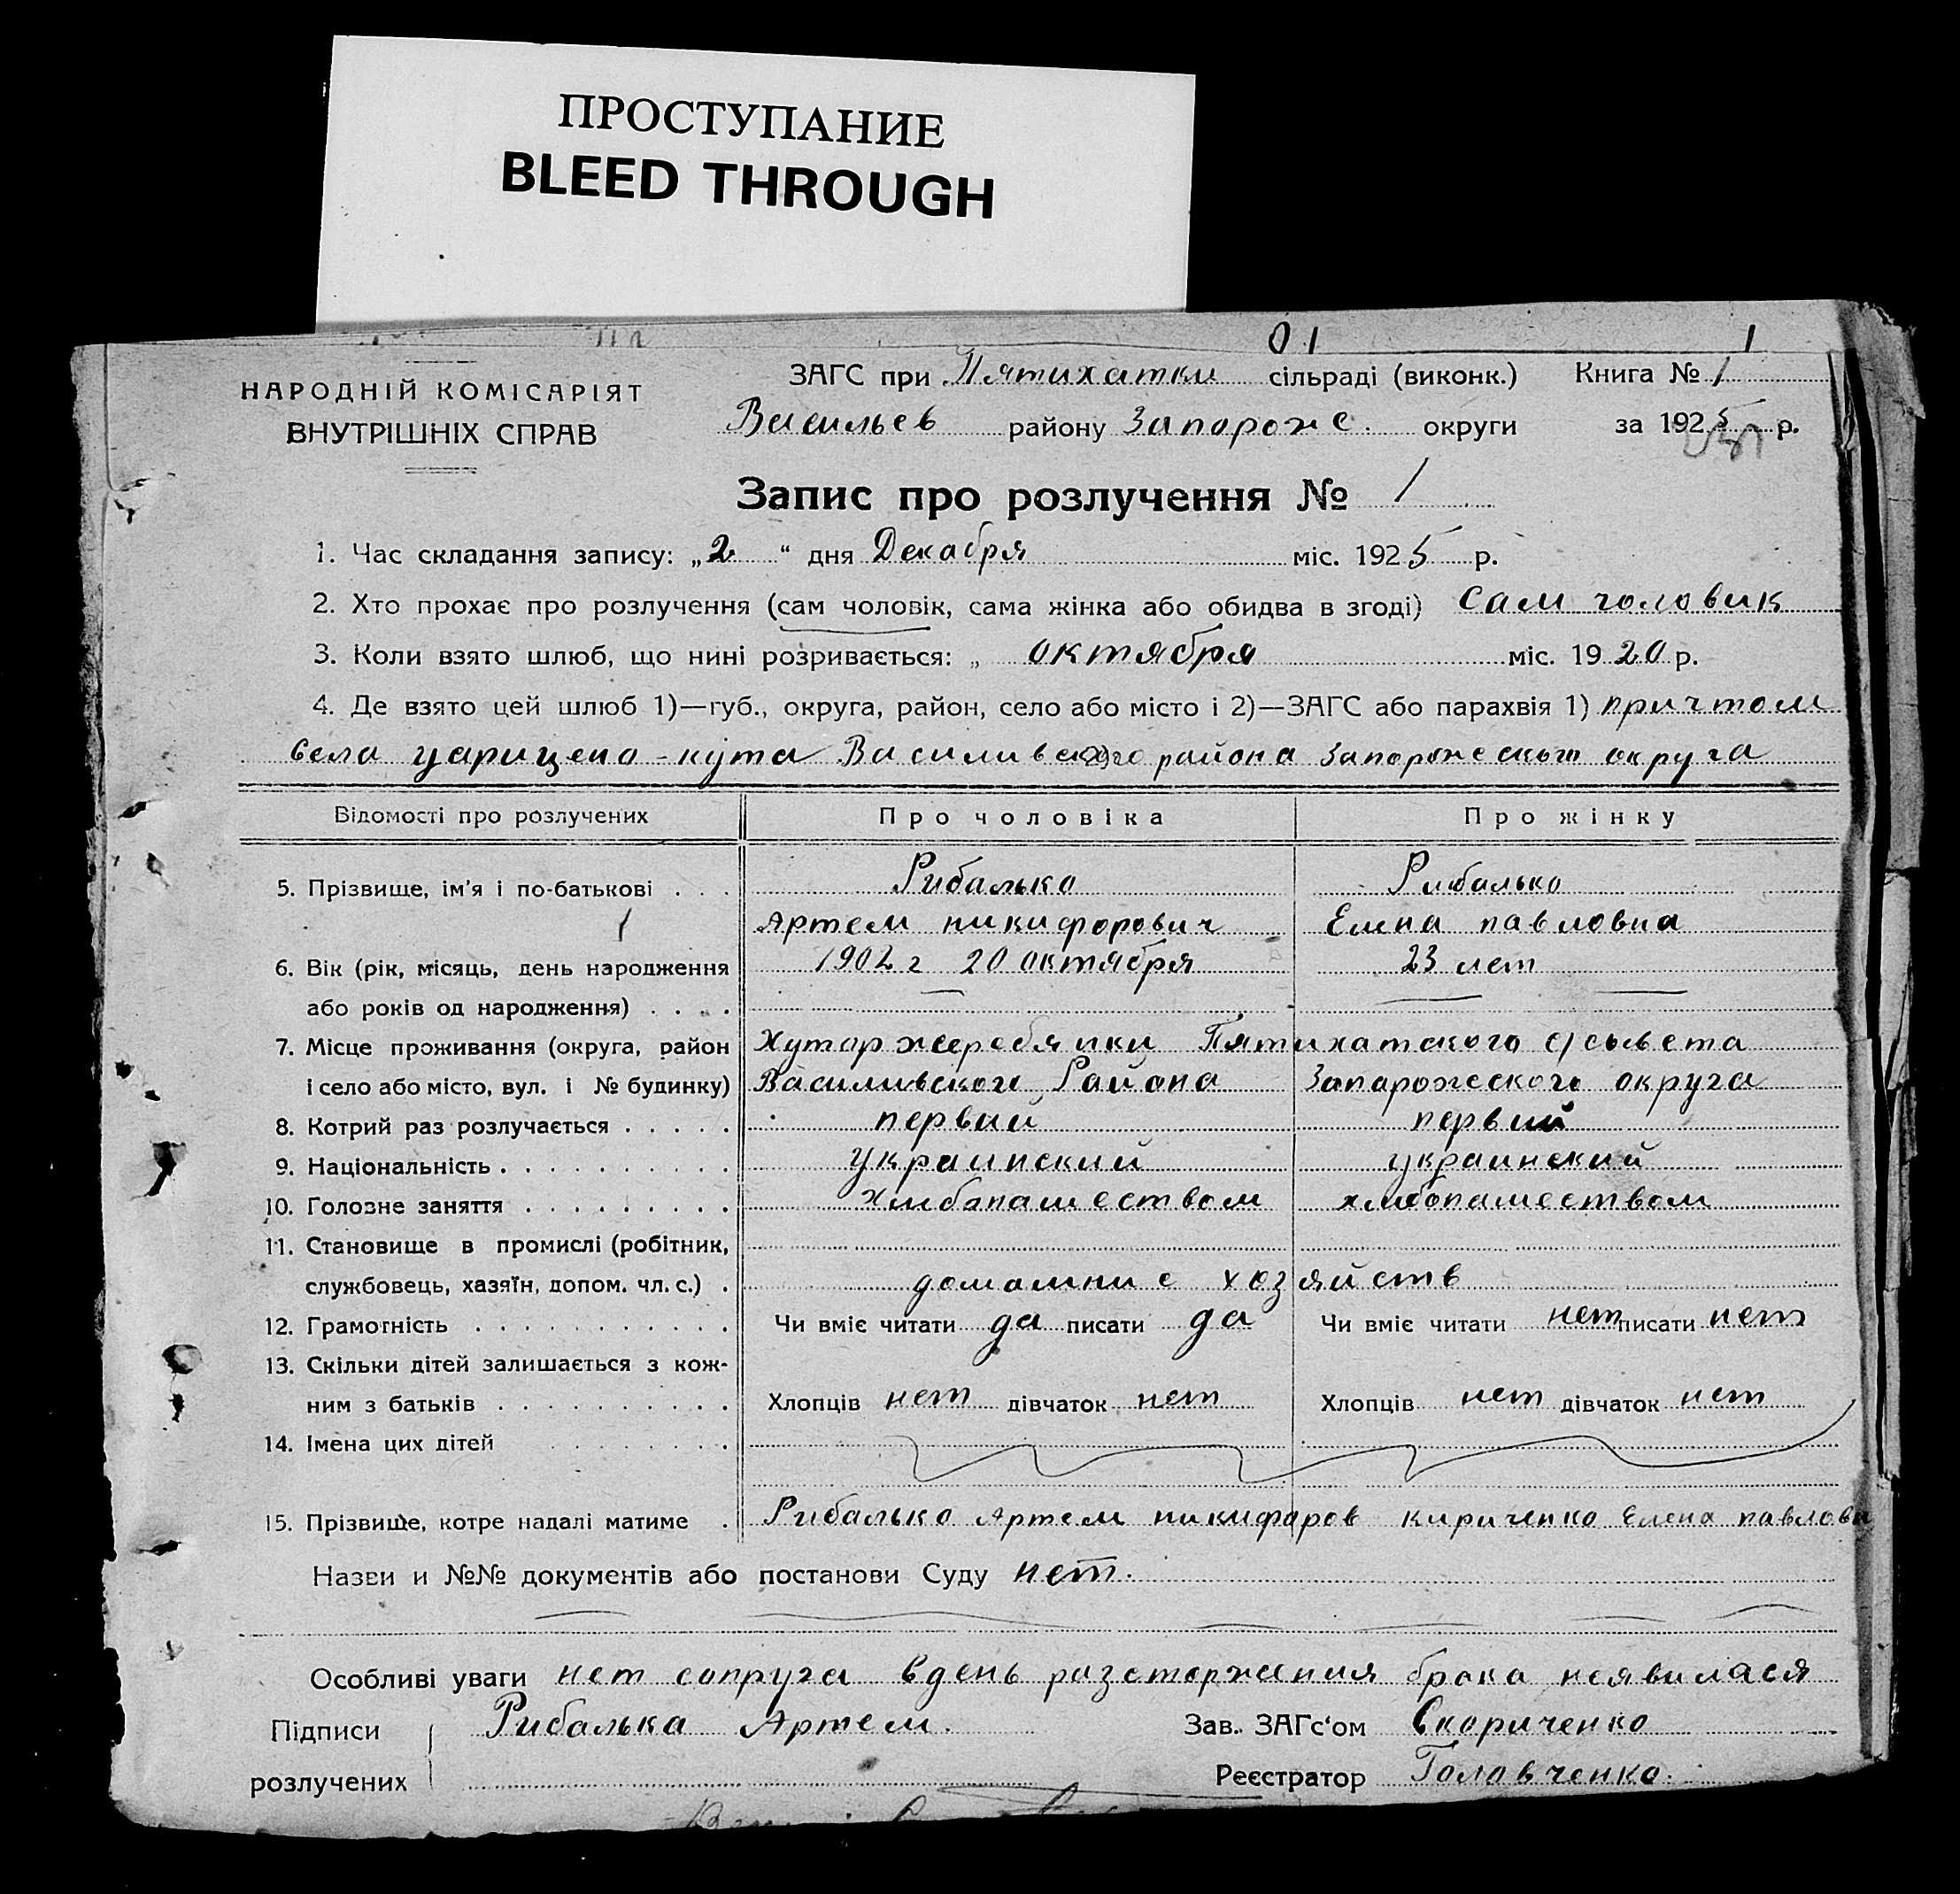 ПРОСТУПАНИЕ
BLEED THROUGH
01 1
НАРОДНІЙ КОМІСАРІЯТ
ВНУТРІШНІХ СПРАВ
ЗАГС при Пятихатки сільраді (виконк.) Книга № 1
Васильев району Запорож с. округи за 1925 р.
Запис про розлучення № 1
1. Час складання запису: „2 “ дня Декабря міс. 1925 р.
2. Хто прохає про розлучення (сам чоловік, сама жінка або обидва в згоді) сам чоловик
3. Коли взято шлюб, що нині розривається: „ октября міс. 1920 р.
4. Де взято цей шлюб 1)—губ., округа, район, село або місто і 2)—ЗАГС або парахвія 1) причтом
села царицено-кута Василивского района Запорожеского округа
Відомості про розлучених Про чоловіка Про жінку
5. Прізвище, ім’я і по-батькові . . . Рибалько Рибалько
Артем никифорович Елена павловна
6. Вік (рік, місяць, день народження 1902 г 20 октября 23 лет
або років од народження) . . . .
7. Місце проживання (округа, район Хутор жеребянки Пятихатского с/совета
і село або місто, вул. і № будинку) Василивского Района Запарожеского округа
8. Котрий раз розлучається . . . . . первий первий
9. Національність . . . . . . . . . . украинский украинский
10. Головне заняття . . . . . . . . . хлибапашеством хлибопашеством
11. Становище в промислі (робітник,
службовець, хазяїн, допом. чл. с.) . домашни е хозяйств
12. Грамотність . . . . . . . . . . . Чи вміє читати да писати да Чи вміє читати нет писати нет
13. Скільки дітей залишається з кож-
ним з батьків . . . . . . . . . . Хлопців нет дівчаток нет Хлопців нет дівчаток нет
14. Імена цих дітей . . . . . . . .
15. Прізвище, котре надалі матиме . Рибалько Артем никифаров кириченко Елена павлова
Назви и №№ документів або постанови Суду нет.
Особливі уваги нет сопруга вдень разсторжения брака неявилася
Підписи Рибалька Артем. Зав. ЗАГс‘ом Скориченко
розлучених Реєстратор Головченко.